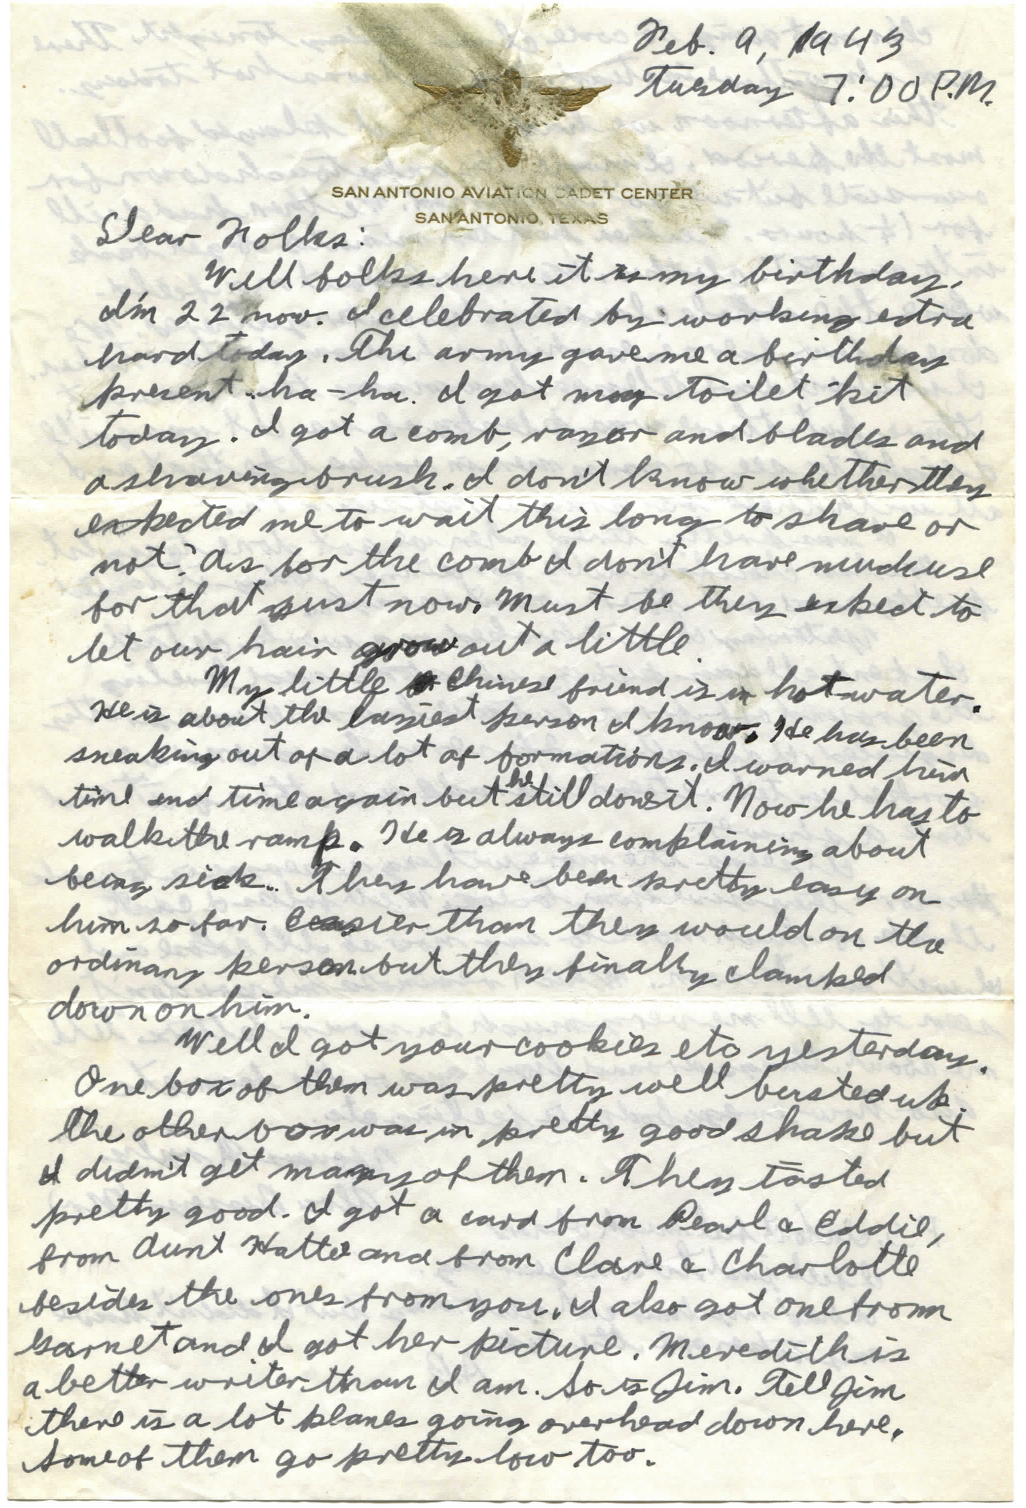 Feb. 9, 1943
Tuesday 7:00 P.M.
SAN ANTONIO AVIATION CADET CENTER
SAN ANTONIO, TEXAS
Dear Folks:
Well folks here it is my birthday.
I'm 22 now. I celebrated by working extra
hard today. The army gave me a birthday
present - ha-ha. I got my toilet kit
today. I got a comb, razor and blades and
a shaving brush. I don't know whether they
expected me to wait this long to shave or
not. As for the comb I don't have much use
for that just now. Must be they expect to
let our hair grow out a little.
My little Chinese friend is in hot water.
He is about the laziest person I know. He has been
sneaking out of a lot of formations. I warned him
time and time again but he still does it. Now he has to
walk the ramp. He is always complaining about
being sick. They have been pretty easy on
him so far. Easier than they would on the
ordinary person but they finally clamped
down on him.
Well I got your cookies etc yesterday.
One box of them was pretty well busted up.
The other box was in pretty good shape but
I didn't get many of them. They tasted
pretty good. I got a card from Pearl & Eddie,
from Aunt Hattie and from Clare & Charlotte
besides the ones from you. I also got one from
Garnet and I got her picture. Meredith is
a better writer than I am. So is Jim. Tell Jim
there is a lot planes going overhead down here.
Some of them go pretty low too.